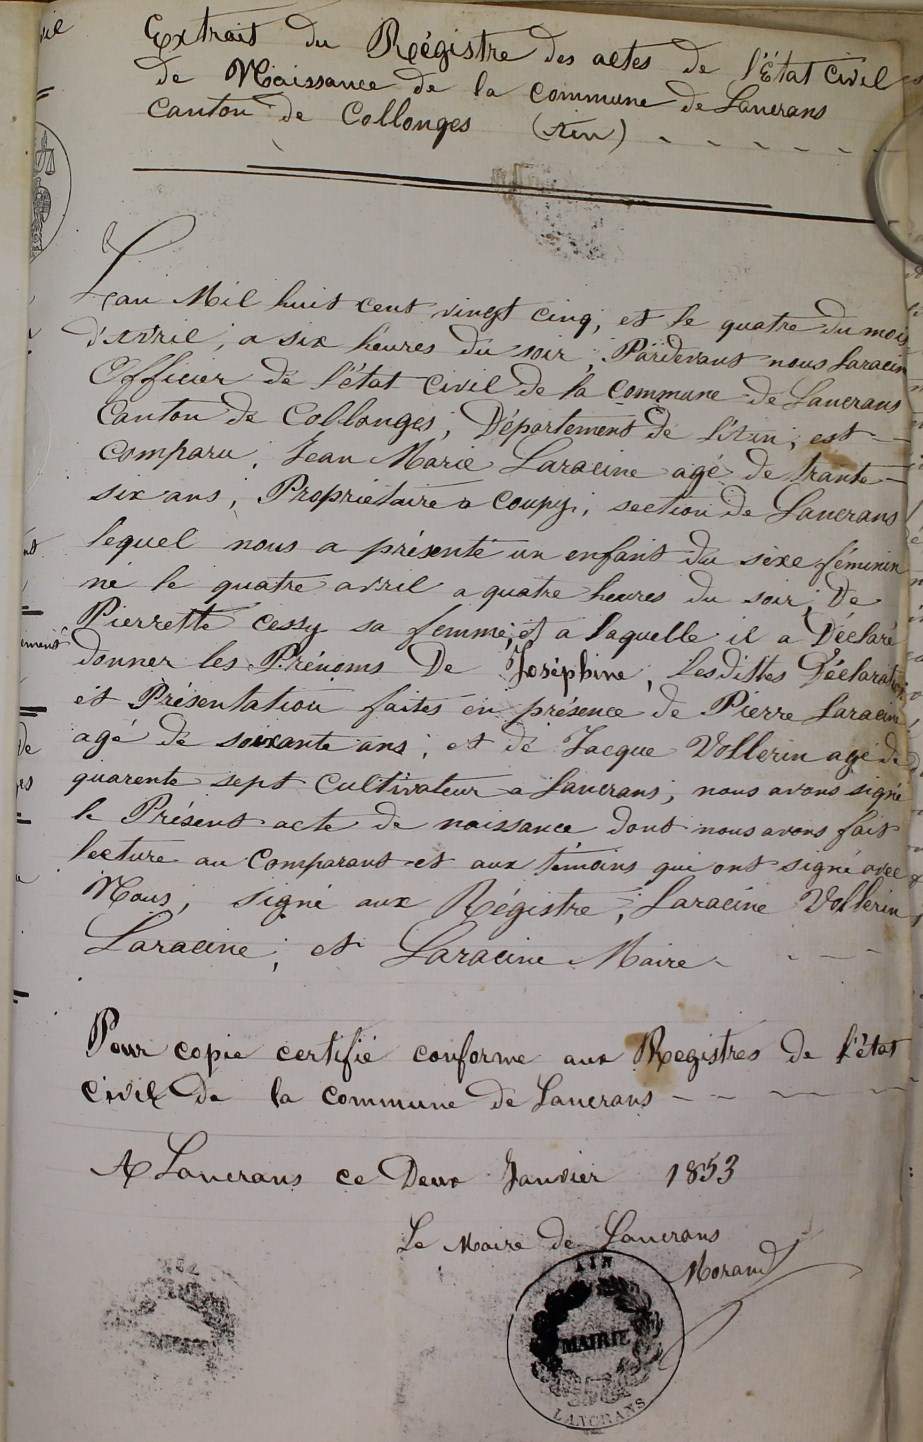 Extrait du Régistre des actes de l'État civil
de Naissance de la commune de Lancrans
canton de Collonges (Ain)
L'an Mil huit cent vingt cinq, et le quatre du mois
d'avril, a six heures du soir, Pardevant nous Laracine
Officier de l'état civil de la commune de Lancrans
Canton de Collonges, Département de l'Ain, est
comparu, Jean Marie Laracine agé de trante
six ans, Propriétaire a Coupy, section de Lancrans
lequel nous a présenté un enfant du sixe féminin
né le quatre avril a quatre heures du soir, De
Pierrette Cessy sa femme, et a laquelle il a Déclaré
donner les Prénoms De Joséphine, Lesdittes Déclaration
et Présentation faites en présence de Pierre Laracine
agé de soixante ans, et de Jacque Vollerin agé de
quarente sept Cultivateur a Lancrans, nous avons signé
le Présent acte de naissance dont nous avons fait
lecture au Comparant et aux témoins qui ont signé avec
Nous, signé aux Régistre, Laracine Vollerin
Laracine, et Laracine Maire
Pour copie certifié conforme aux Registres de l'état
civil de la commune de Lancrans
A Lancrans ce Deux Janvier 1853
Le Maire de Lancrans
Morand
AIN
MAIRIE
LANCRANS